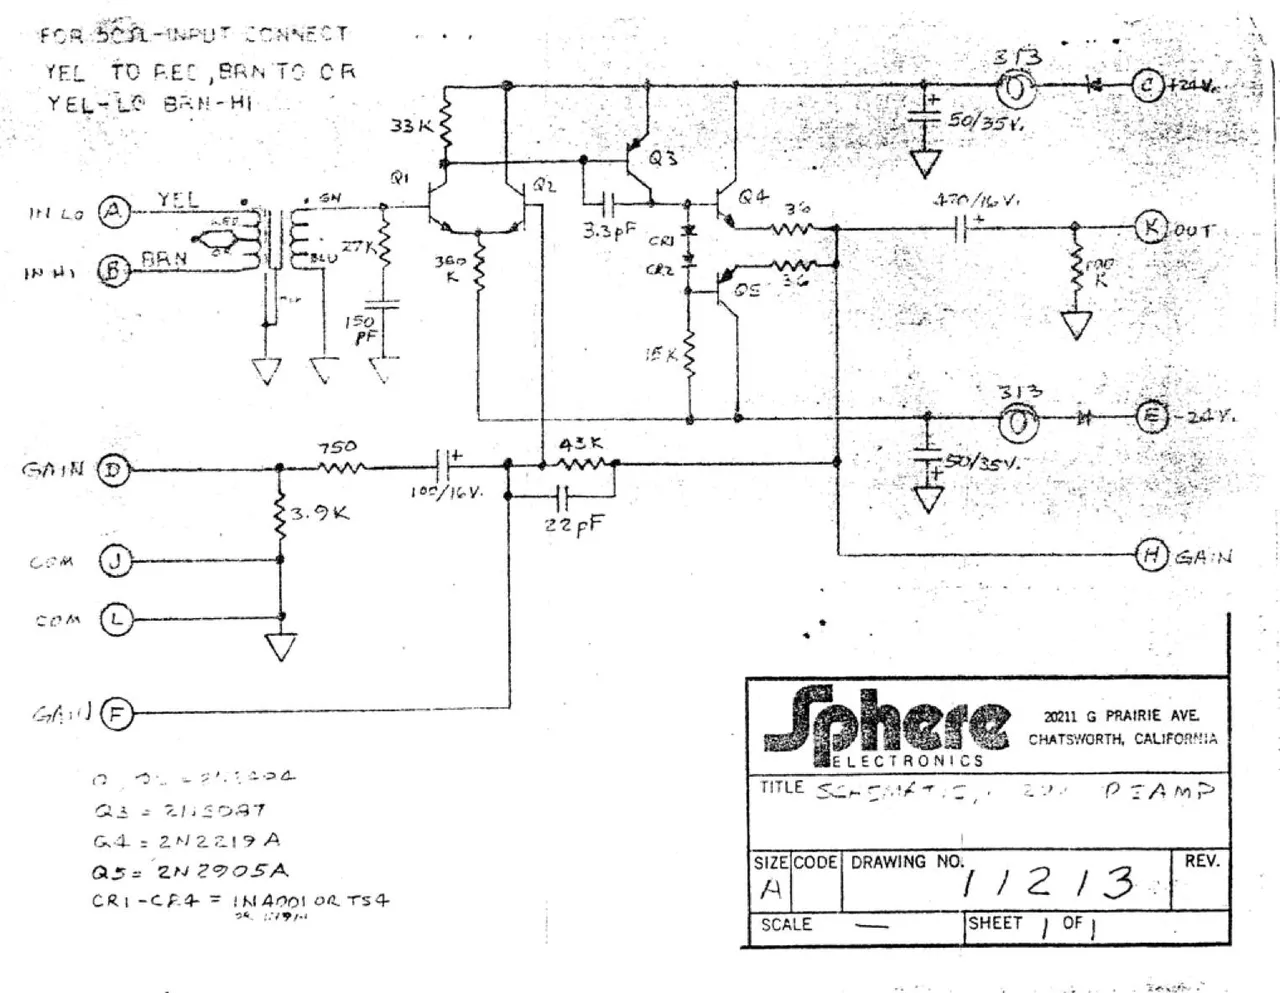 FOR 50Ω-INPUT CONNECT
YEL TO RED, BRN TO OR
YEL-LO BRN-HI
313
C +24V.
33K
50/35V.
Q3
Q1
Q2
IN LO A YEL
GN
RED
OR
Q4
36
470/16V.
K OUT
3.3pF
CR1
27K
BLU
360
K
IN HI B BRN
CR2
Q5
36
K
150
pF
15K
313
E -24V.
GAIN D
750
43K
50/35V.
100/16V.
3.9K
22pF
COM J
H GAIN
COM L
GAIN F
Sphere
ELECTRONICS
20211 G PRAIRIE AVE.
CHATSWORTH, CALIFORNIA
TITLE SCHEMATIC,
Q3 = 2N5087
Q4 = 2N2219A
Q5 = 2N2905A
CR1-CR4 = 1N4001 OR TS4
SIZE A
CODE
DRAWING NO. 11213
REV.
SCALE —
SHEET 1 OF 1